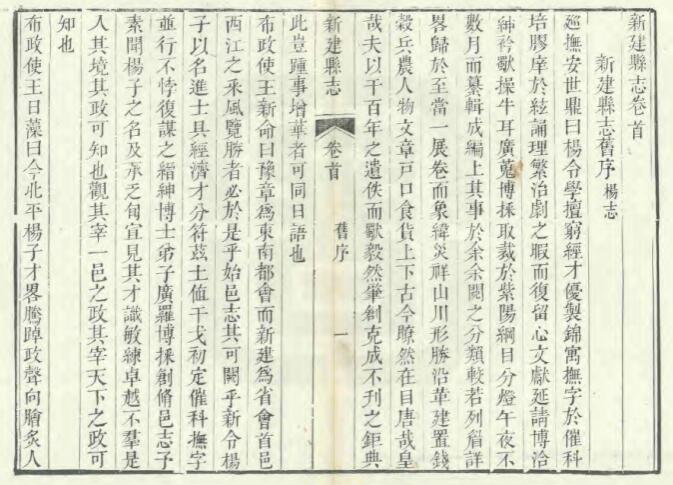 新建縣志卷首
新建縣志舊序 楊志
廵撫安世鼎曰楊令學擅窮經才優製錦寓撫字於催科
培膠庠於絃誦理繁治劇之暇而復留心文獻延請博洽
紳衿歃操牛耳廣蒐博採取裁於紫陽綱目分燈午夜不
數月而纂輯成編上其事於余余閱之分類較若列眉詳
畧歸於至當一展卷而象緯災祥山川形勝沿革建置錢
穀兵農人物文章戸口食貨上下古今瞭然在目唐哉皇
哉夫以千百年之遺佚而獨毅然肇創克成不刋之鉅典
新建縣志 卷首 舊序 一
此豈踵事增華者可同日語也
布政使王新命曰豫章爲東南都會而新建爲省會首邑
西江之釆風覽勝者必於是乎始邑志其可闕乎新令楊
子以名進士具經濟才分符茲土値干戈初定催科撫字
並行不悖復謀之縉紳博士弟子廣羅博採創脩邑志予
素聞楊子之名及承乏旬宣見其才識敏練卓越不羣是
人其境其政可知也觀其宰一邑之政其宰天下之政可
知也
布政使王日藻曰今北平楊子才畧騰踔政聲向膾炙人